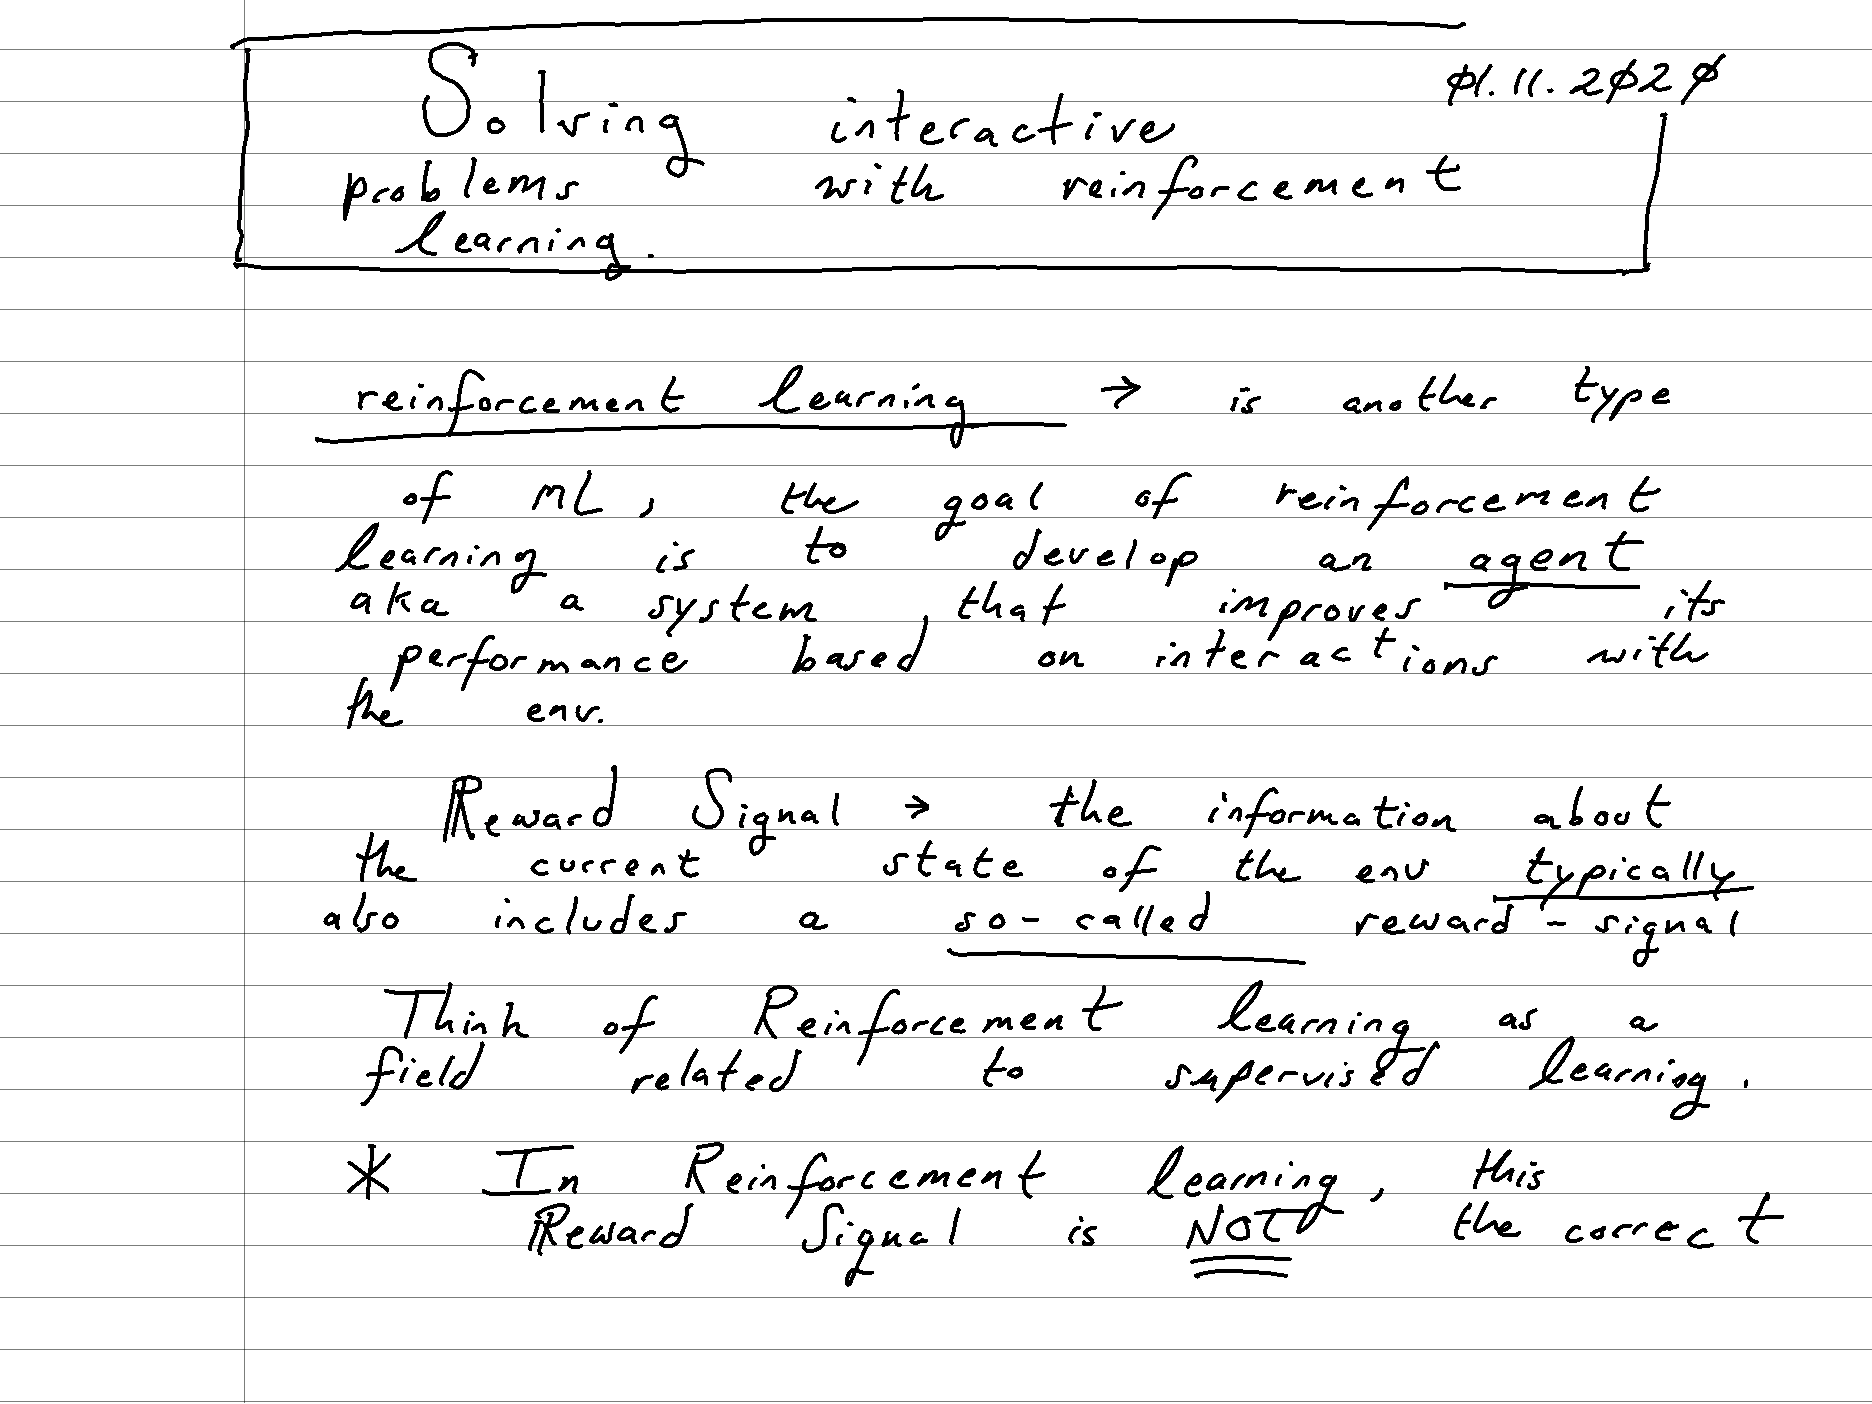 01.11.2020
Solving interactive
problems with reinforcement
learning.
reinforcement learning → is another type
of ML, the goal of reinforcement
learning is to develop an agent
aka a system, that improves its
performance based on interactions with
the env.
Reward Signal → the information about
the current state of the env typically
also includes a so-called reward-signal
Think of Reinforcement learning as a
field related to supervised learning.
* In Reinforcement learning, this
Reward Signal is NOT the correct